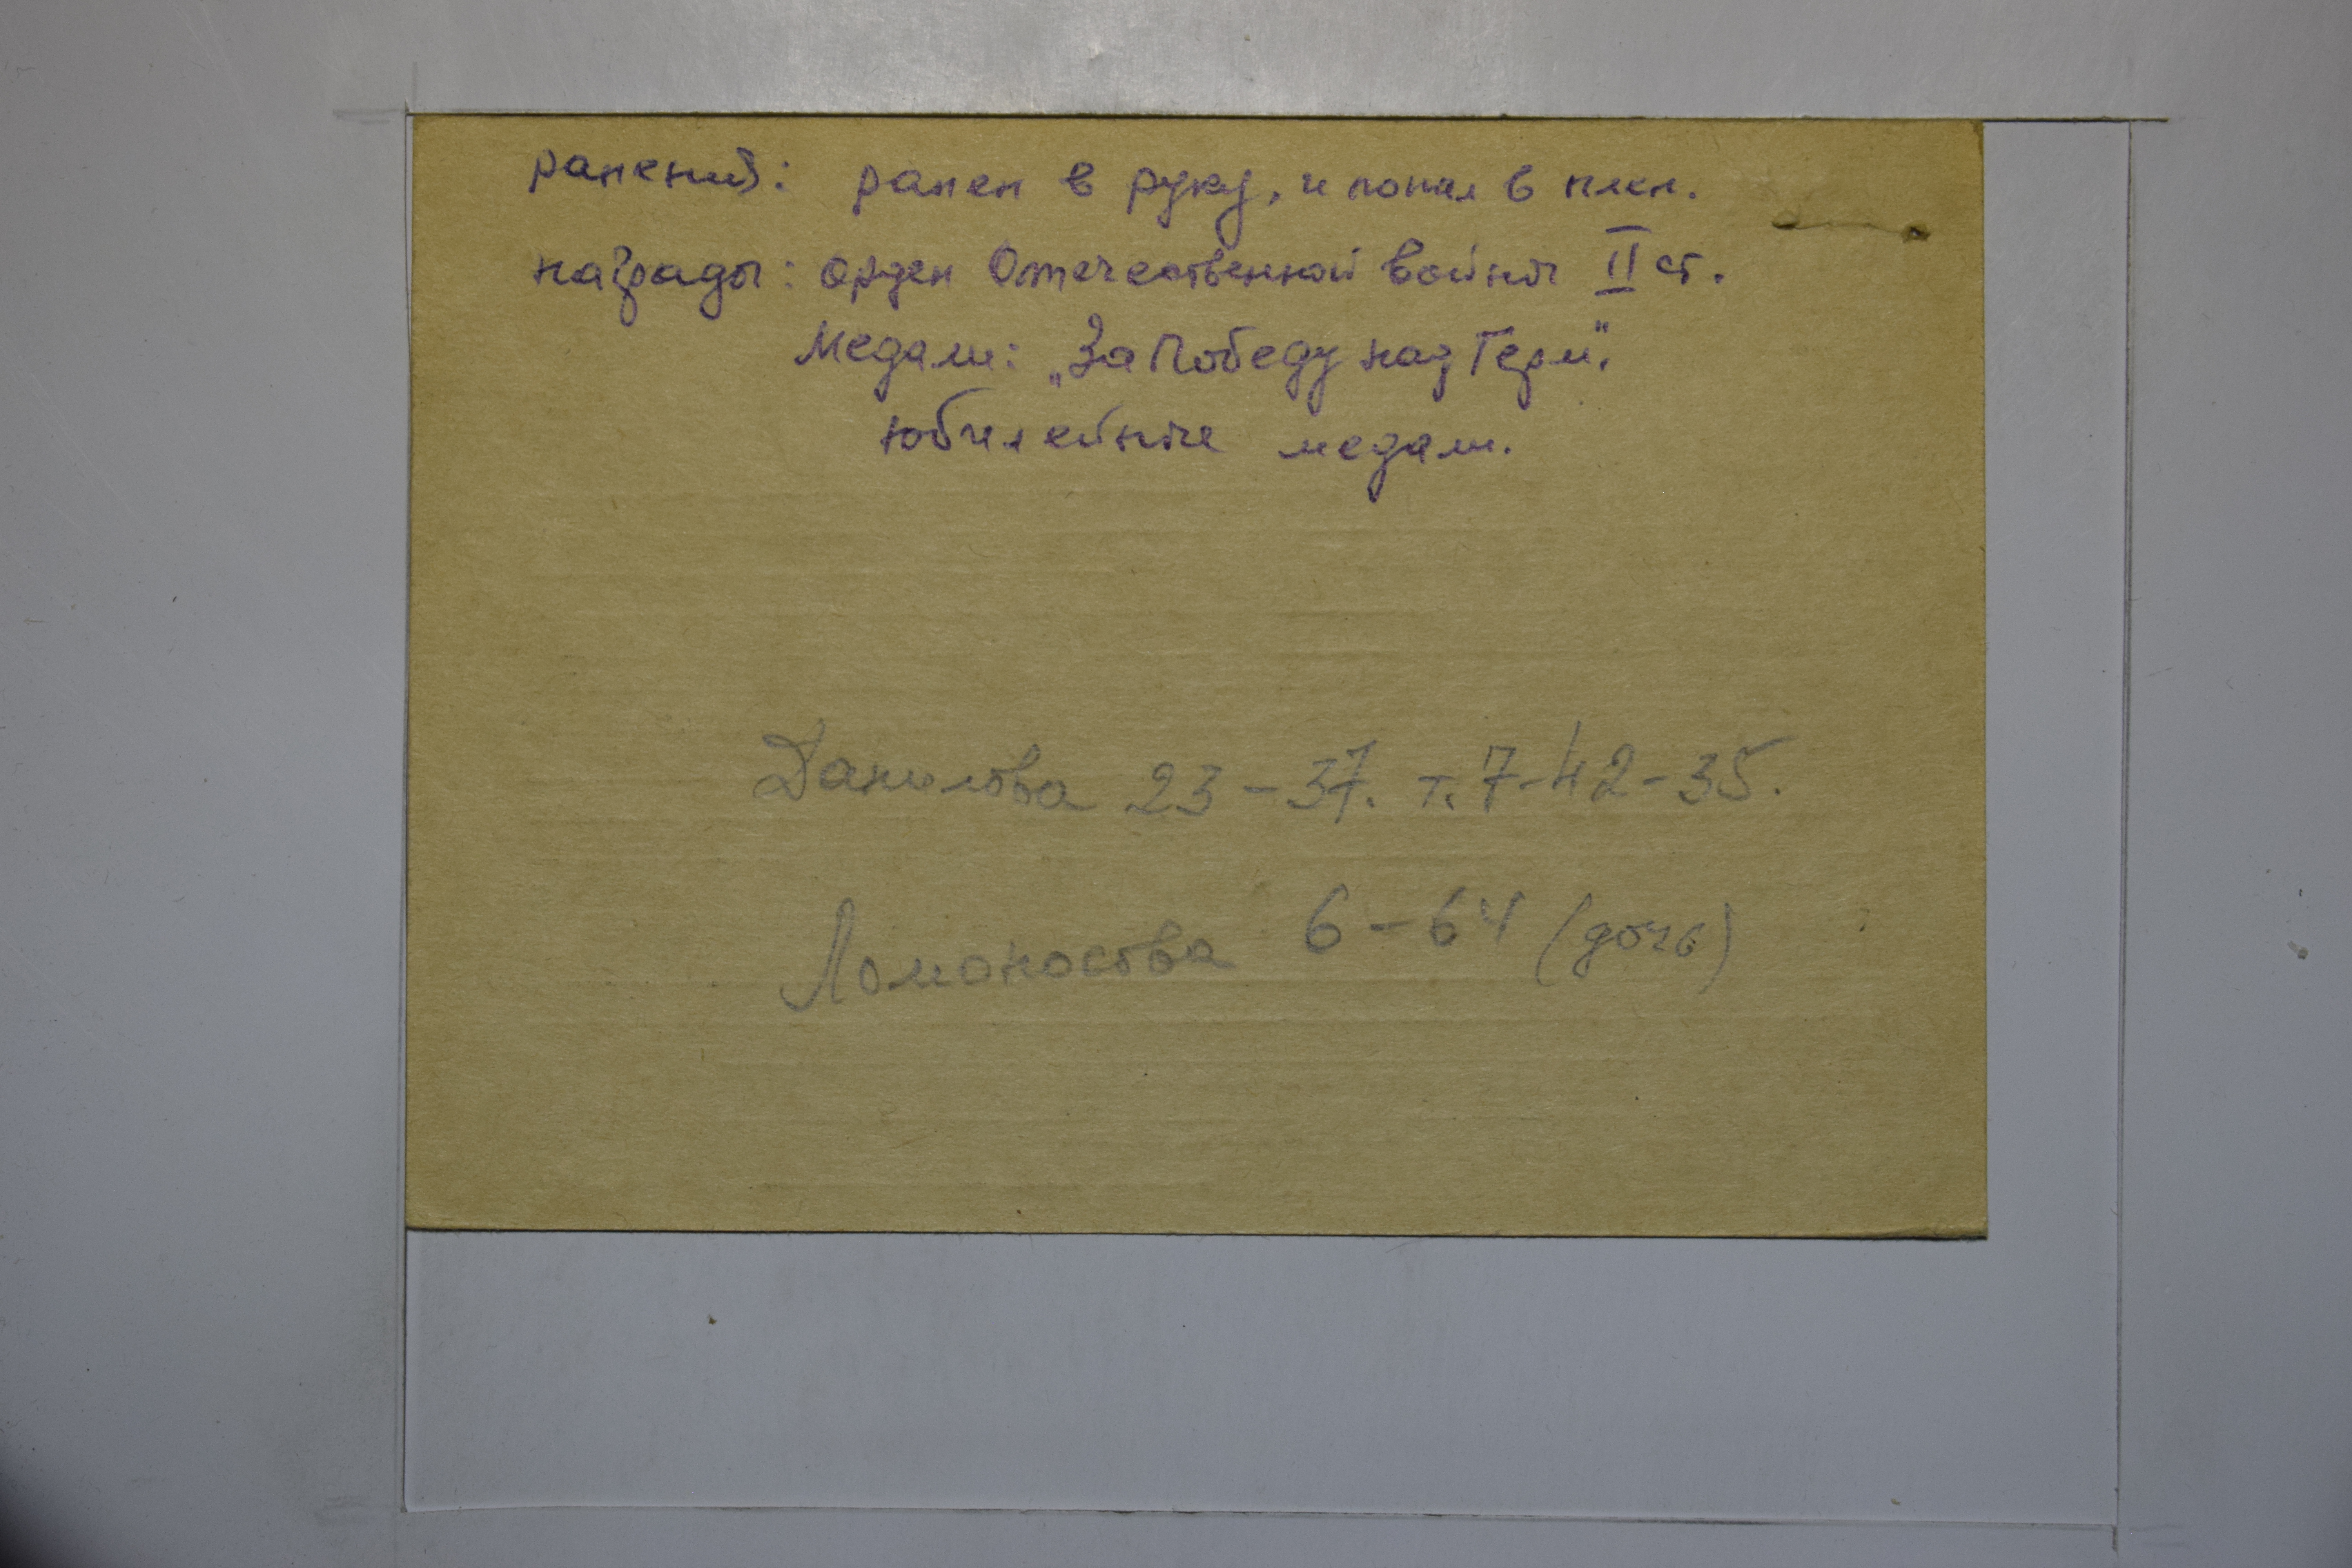 ранений: ранен в руку, и попал в плен.
награды: орден Отечественной войны II ст.
Медали: „За Победу над Герм".
юбилейные медали.
Данилова 23-37. т. 7-42-35.
Ломоносова 6-64 (дочь)